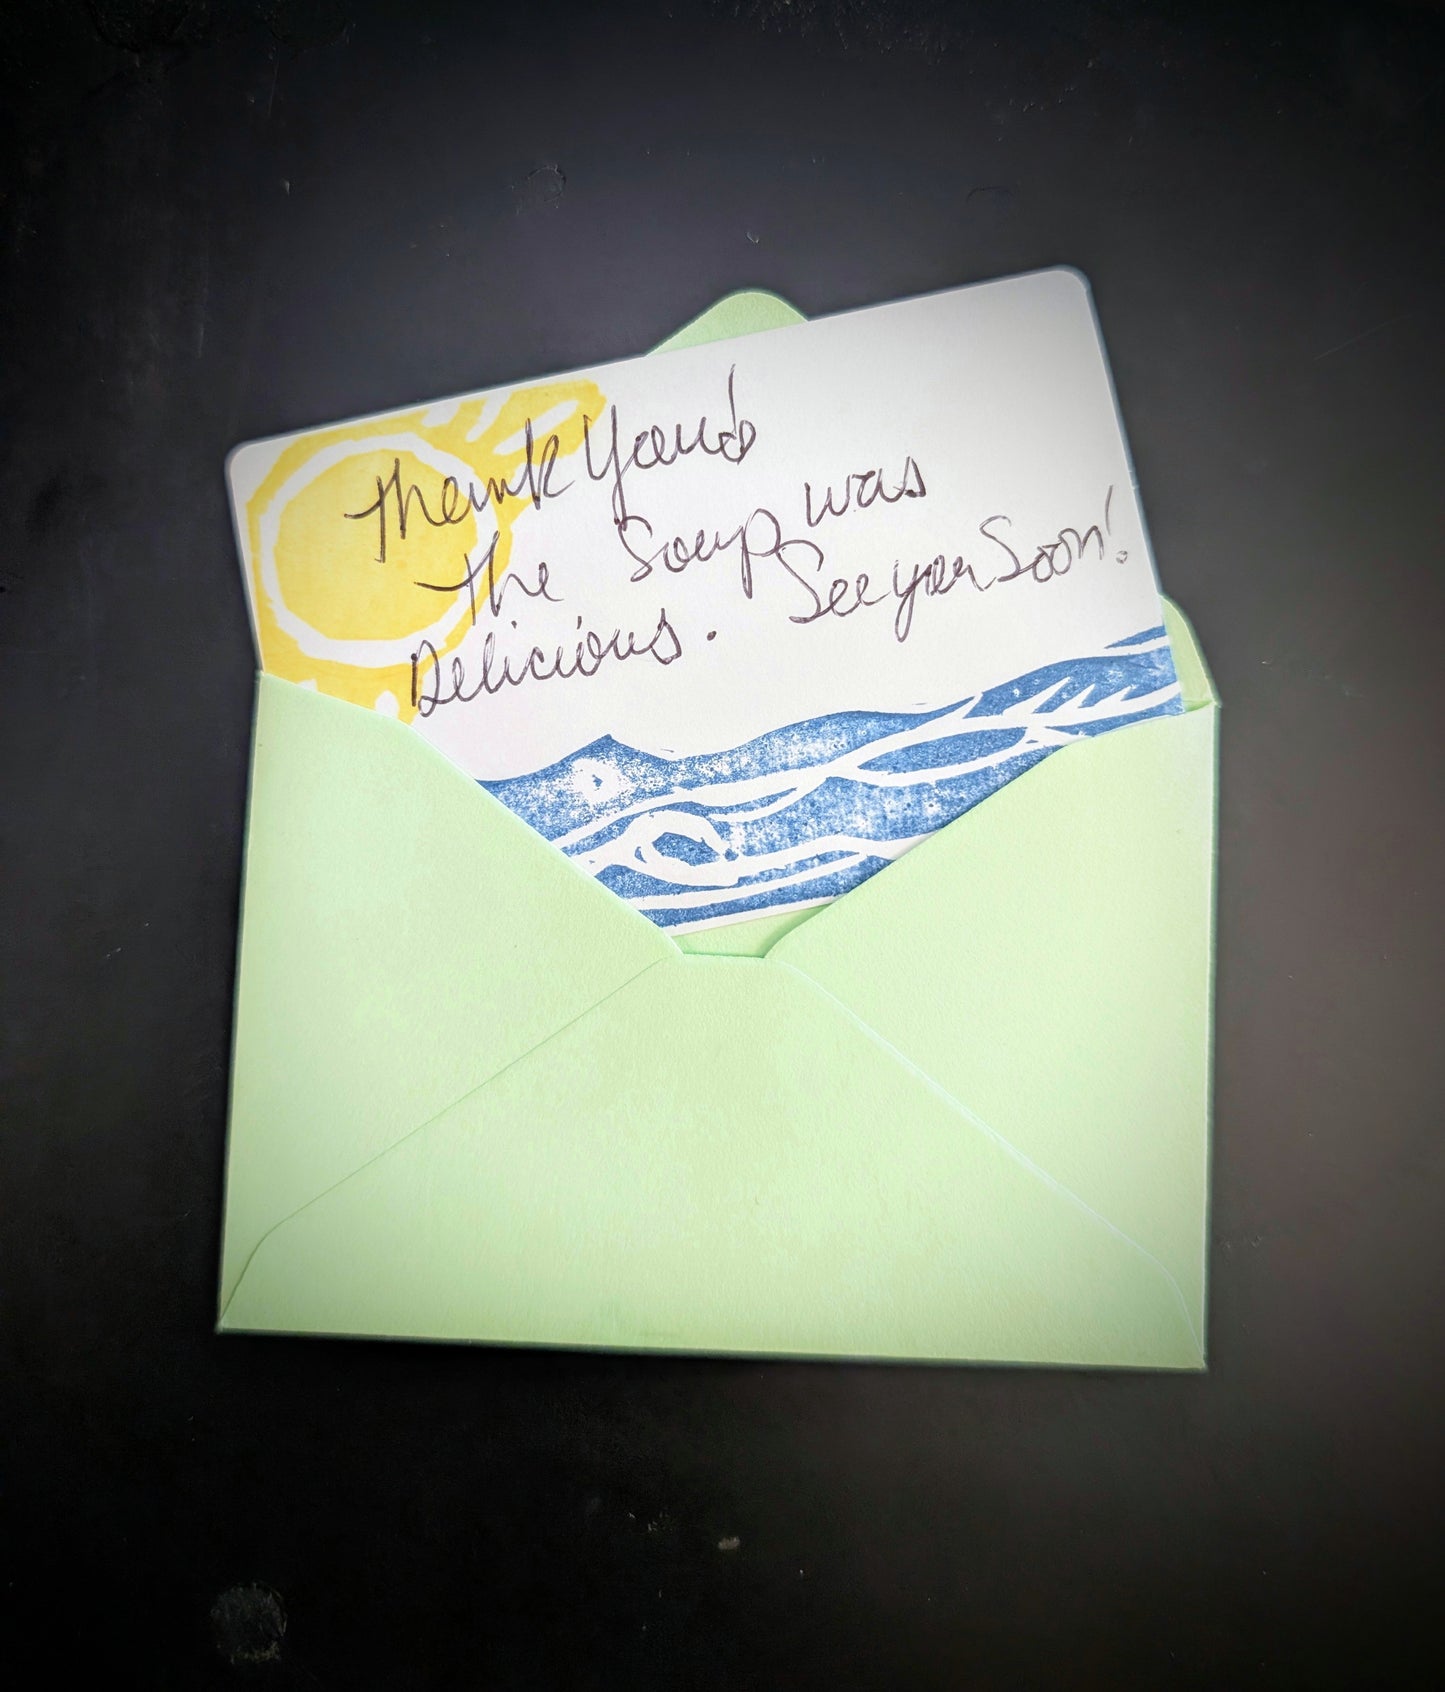 Thank You!
The Soup was
Delicious. See you Soon!